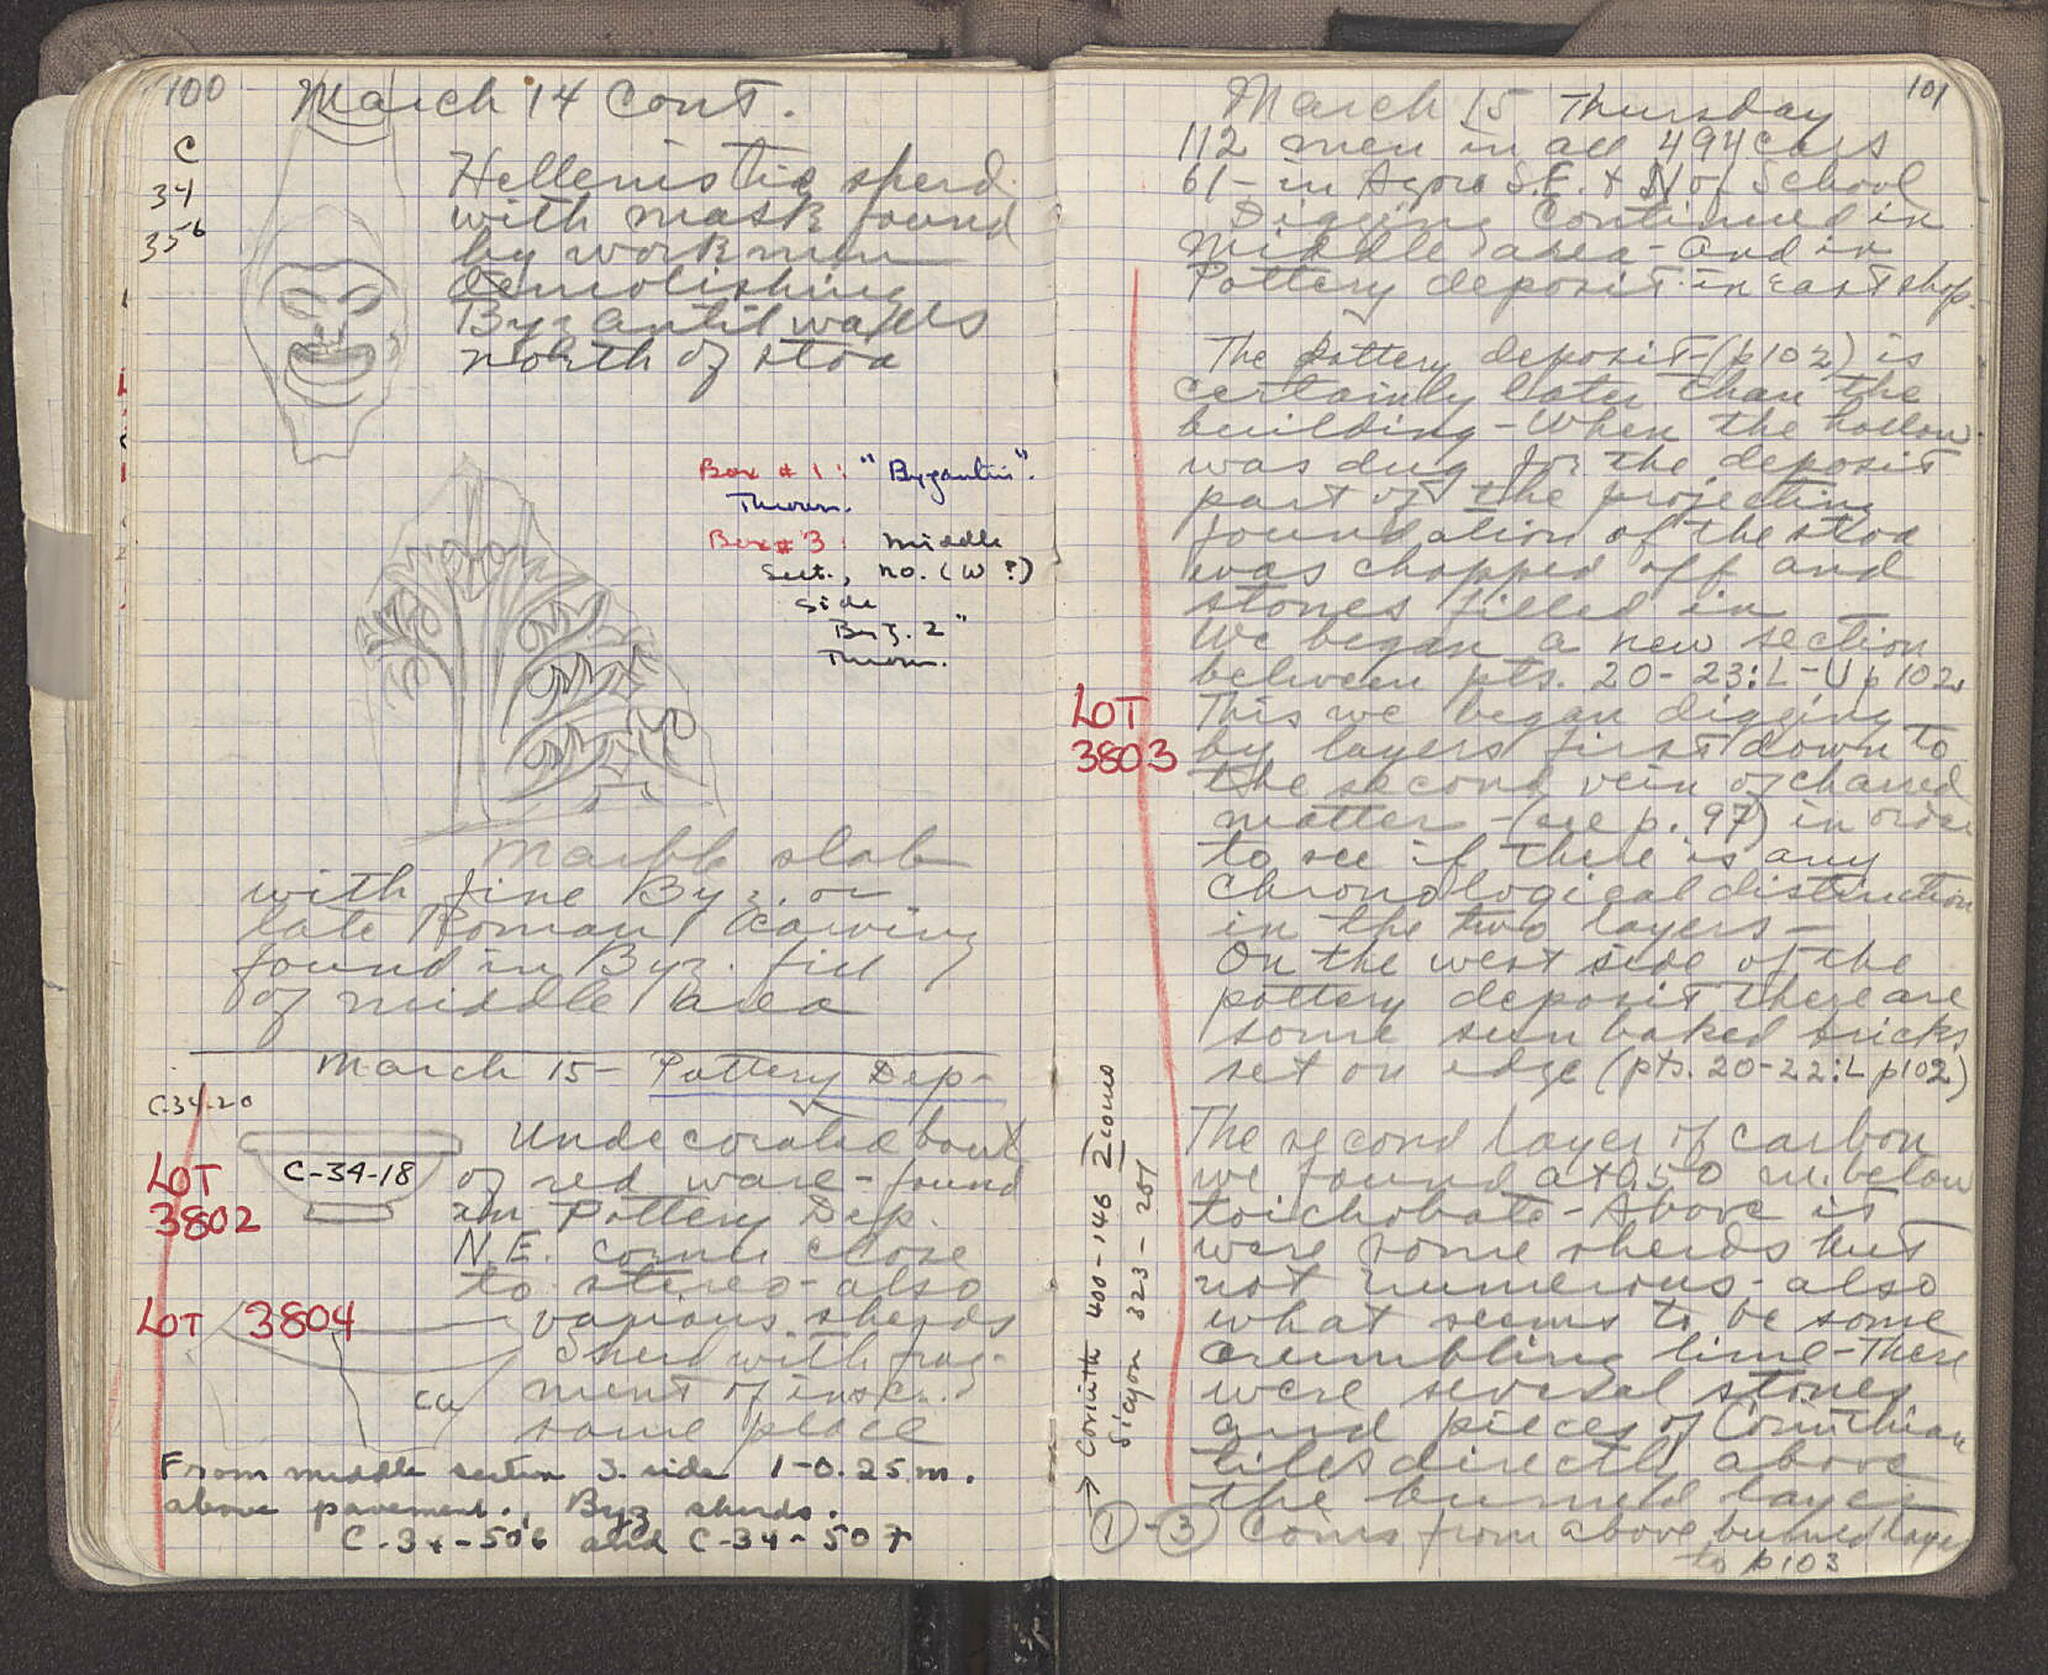 100
March 14 Cont.
C
34
356
Hellenistic sherd
with mask found
by workmen
demolishing
Byzantine walls
north of stoa
Box # 1: "Byzantin".
Thrown.
Box # 3: Middle
Sect., no. (W?)
Side
Byz. 2"
Thrown.
Marble slab
with fine Byz. or
late Roman carving
found in Byz. fill
of middle area
March 15 - Pottery Dep-
C-34-20
C-34-18
LOT
3802
Undecorated bowl
of red ware - found
in Pottery Dep.
N.E. corner close
to stereo - also
various sherds
LOT 3804
Sherd with frag-
ment of inscr.
same place
From middle section S. side 1-0.25 m.
above pavement., Byz sherds.
C-34-506 and C-34-507
101
March 15 Thursday
112 men in all 494 cars
61 - in Agora S.E. & N of School
Digging continued in
middle area - and in
Pottery deposit in east shop.
The pottery deposit (p102) is
certainly later than the
building - When the hollow
was dug for the deposit
part of the projecting
foundation of the stoa
was chopped off and
stones filled in
We began a new section
between pts. 20-23:L-U p 102.
LOT
3803
This we began digging
by layers first down to
the second vein of charred
matter - (see p. 97) in order
to see if there is any
chronological distinction
in the two layers -
On the west side of the
pottery deposit there are
some sun baked bricks
set on edge (pts. 20-22:L p102)
The second layer of carbon
we found at 0.50 m. below
toichobate - Above is
were some sherds but
not numerous - also
what seems to be some
crumbling lime - There
were several stones
and pieces of Corinthian
tiles directly above
the burned layer
① - ③ Coins from above burned layer
to p103
→ Corinth 400-146 2 coins
Sicyon 323-251